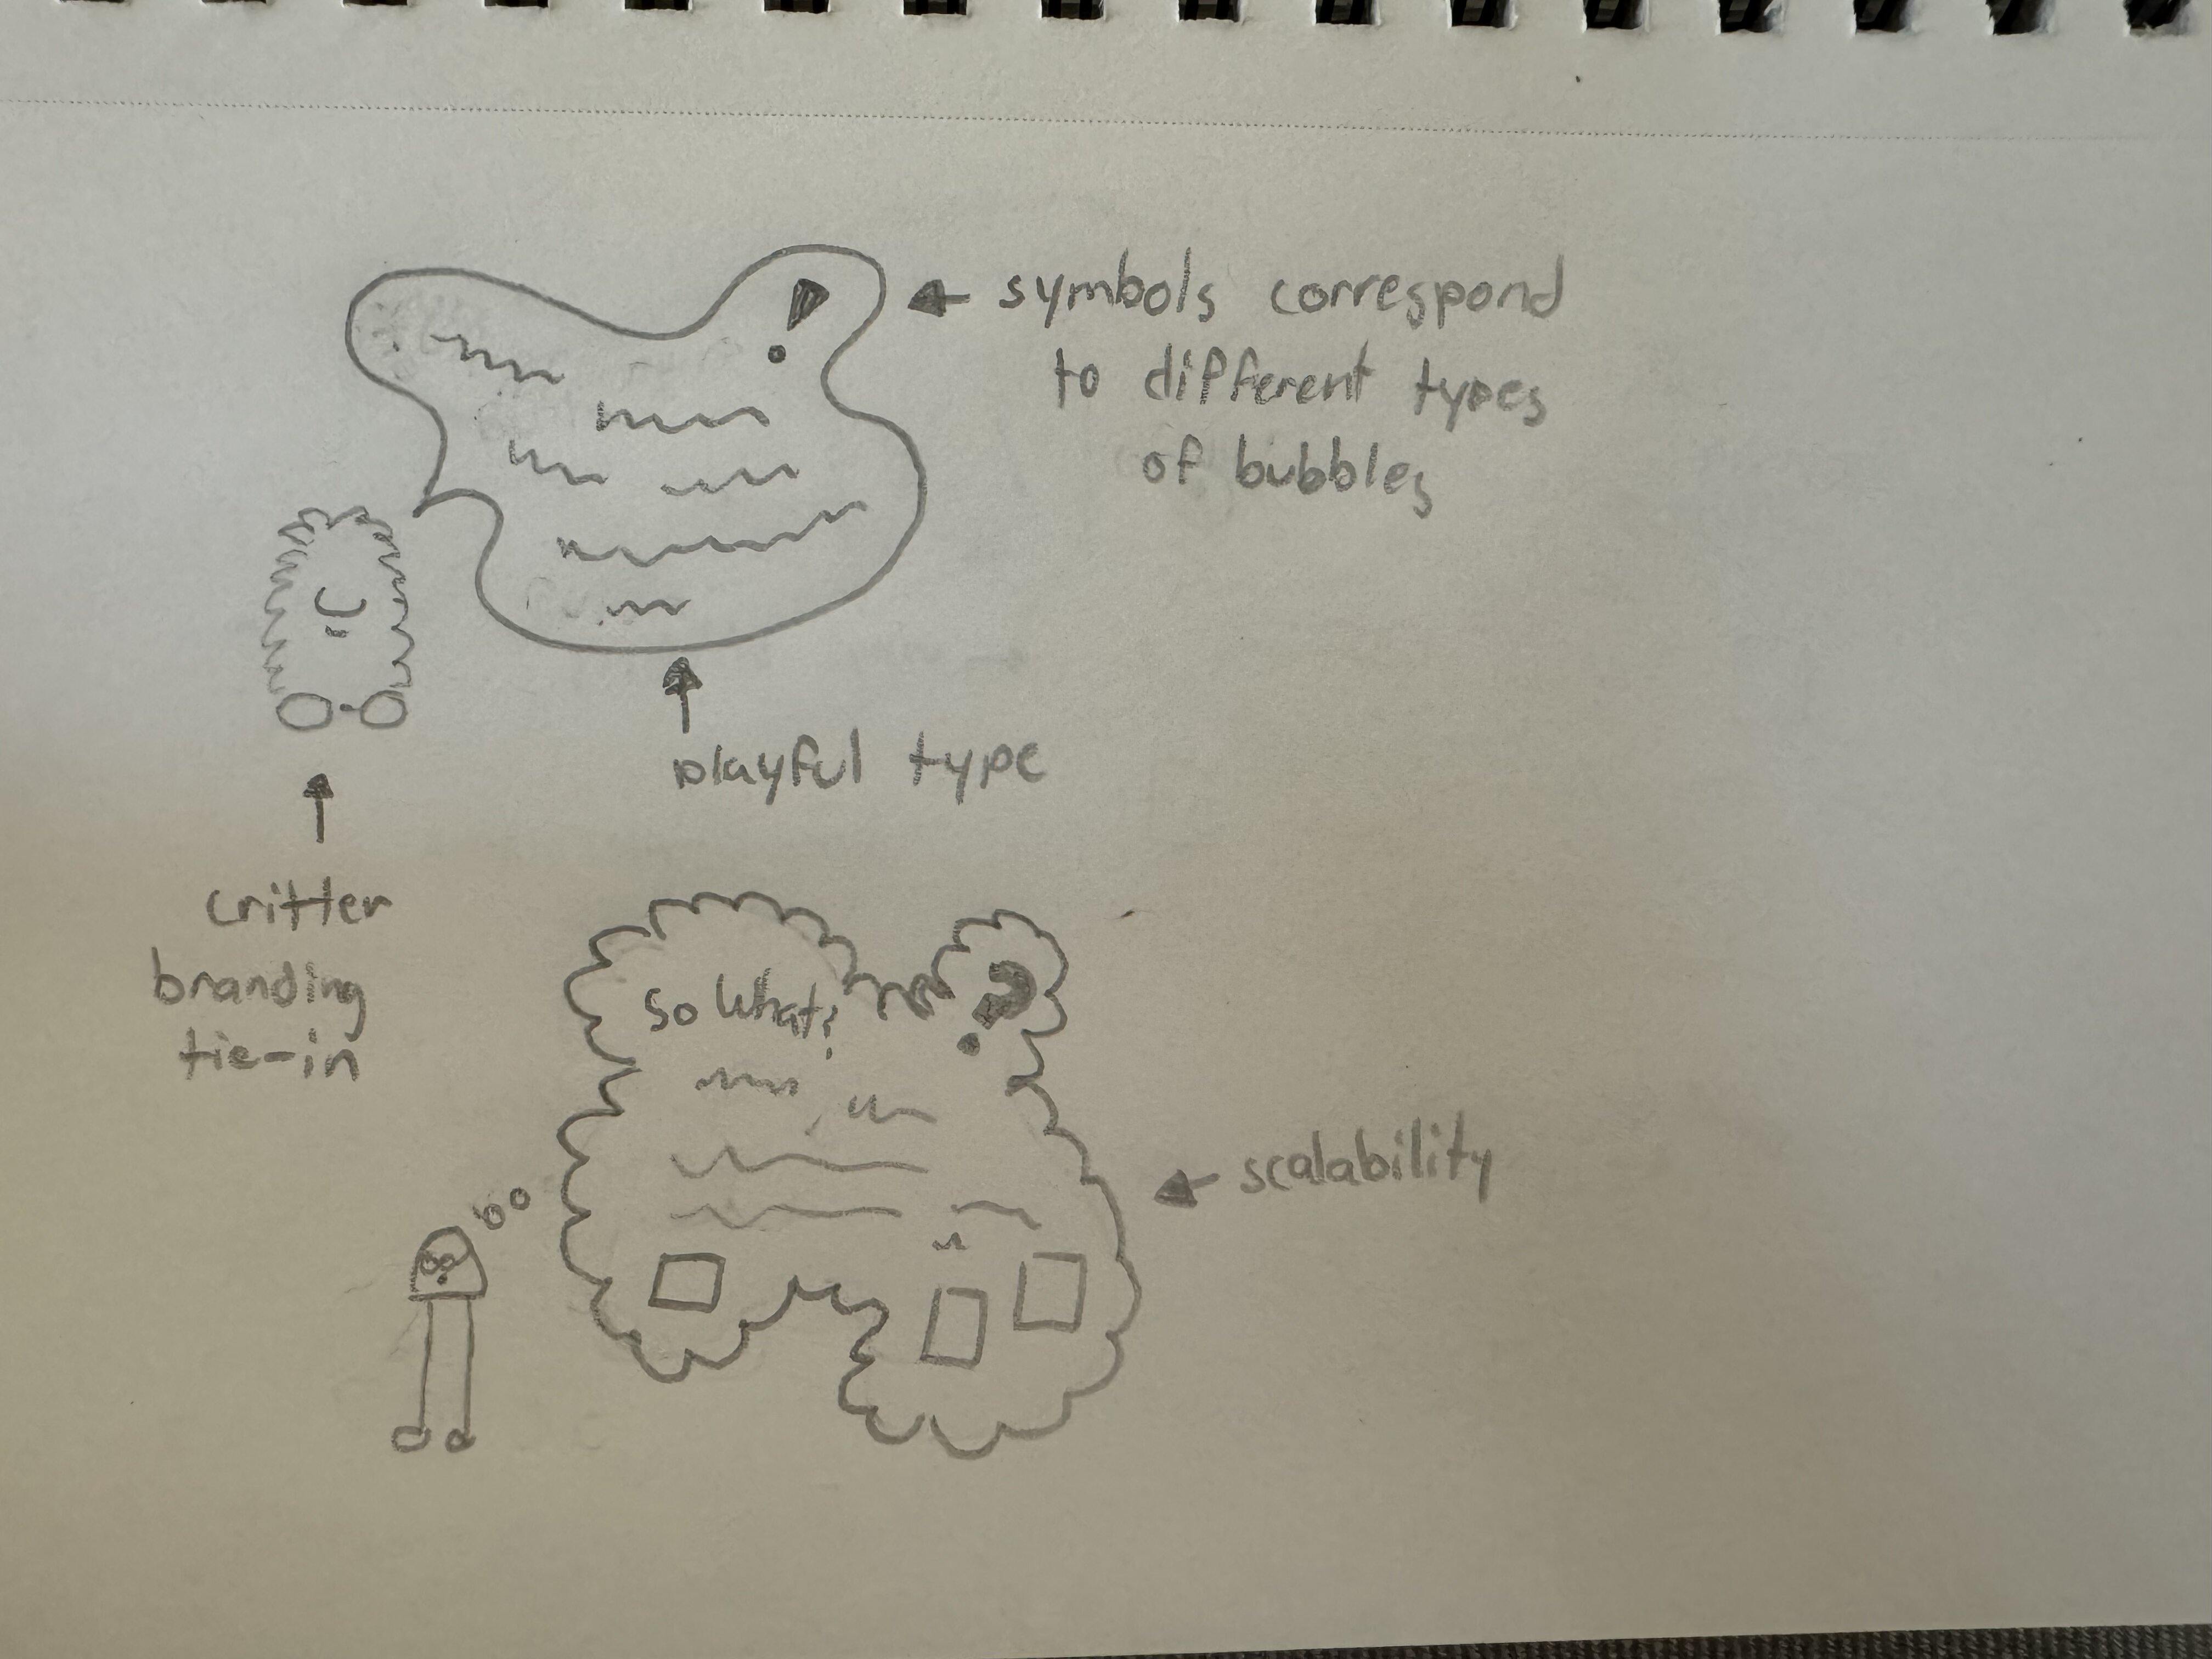 symbols correspond
to different types
of bubbles
playful type
critter
branding
tie-in
!
So What?
?
scalability